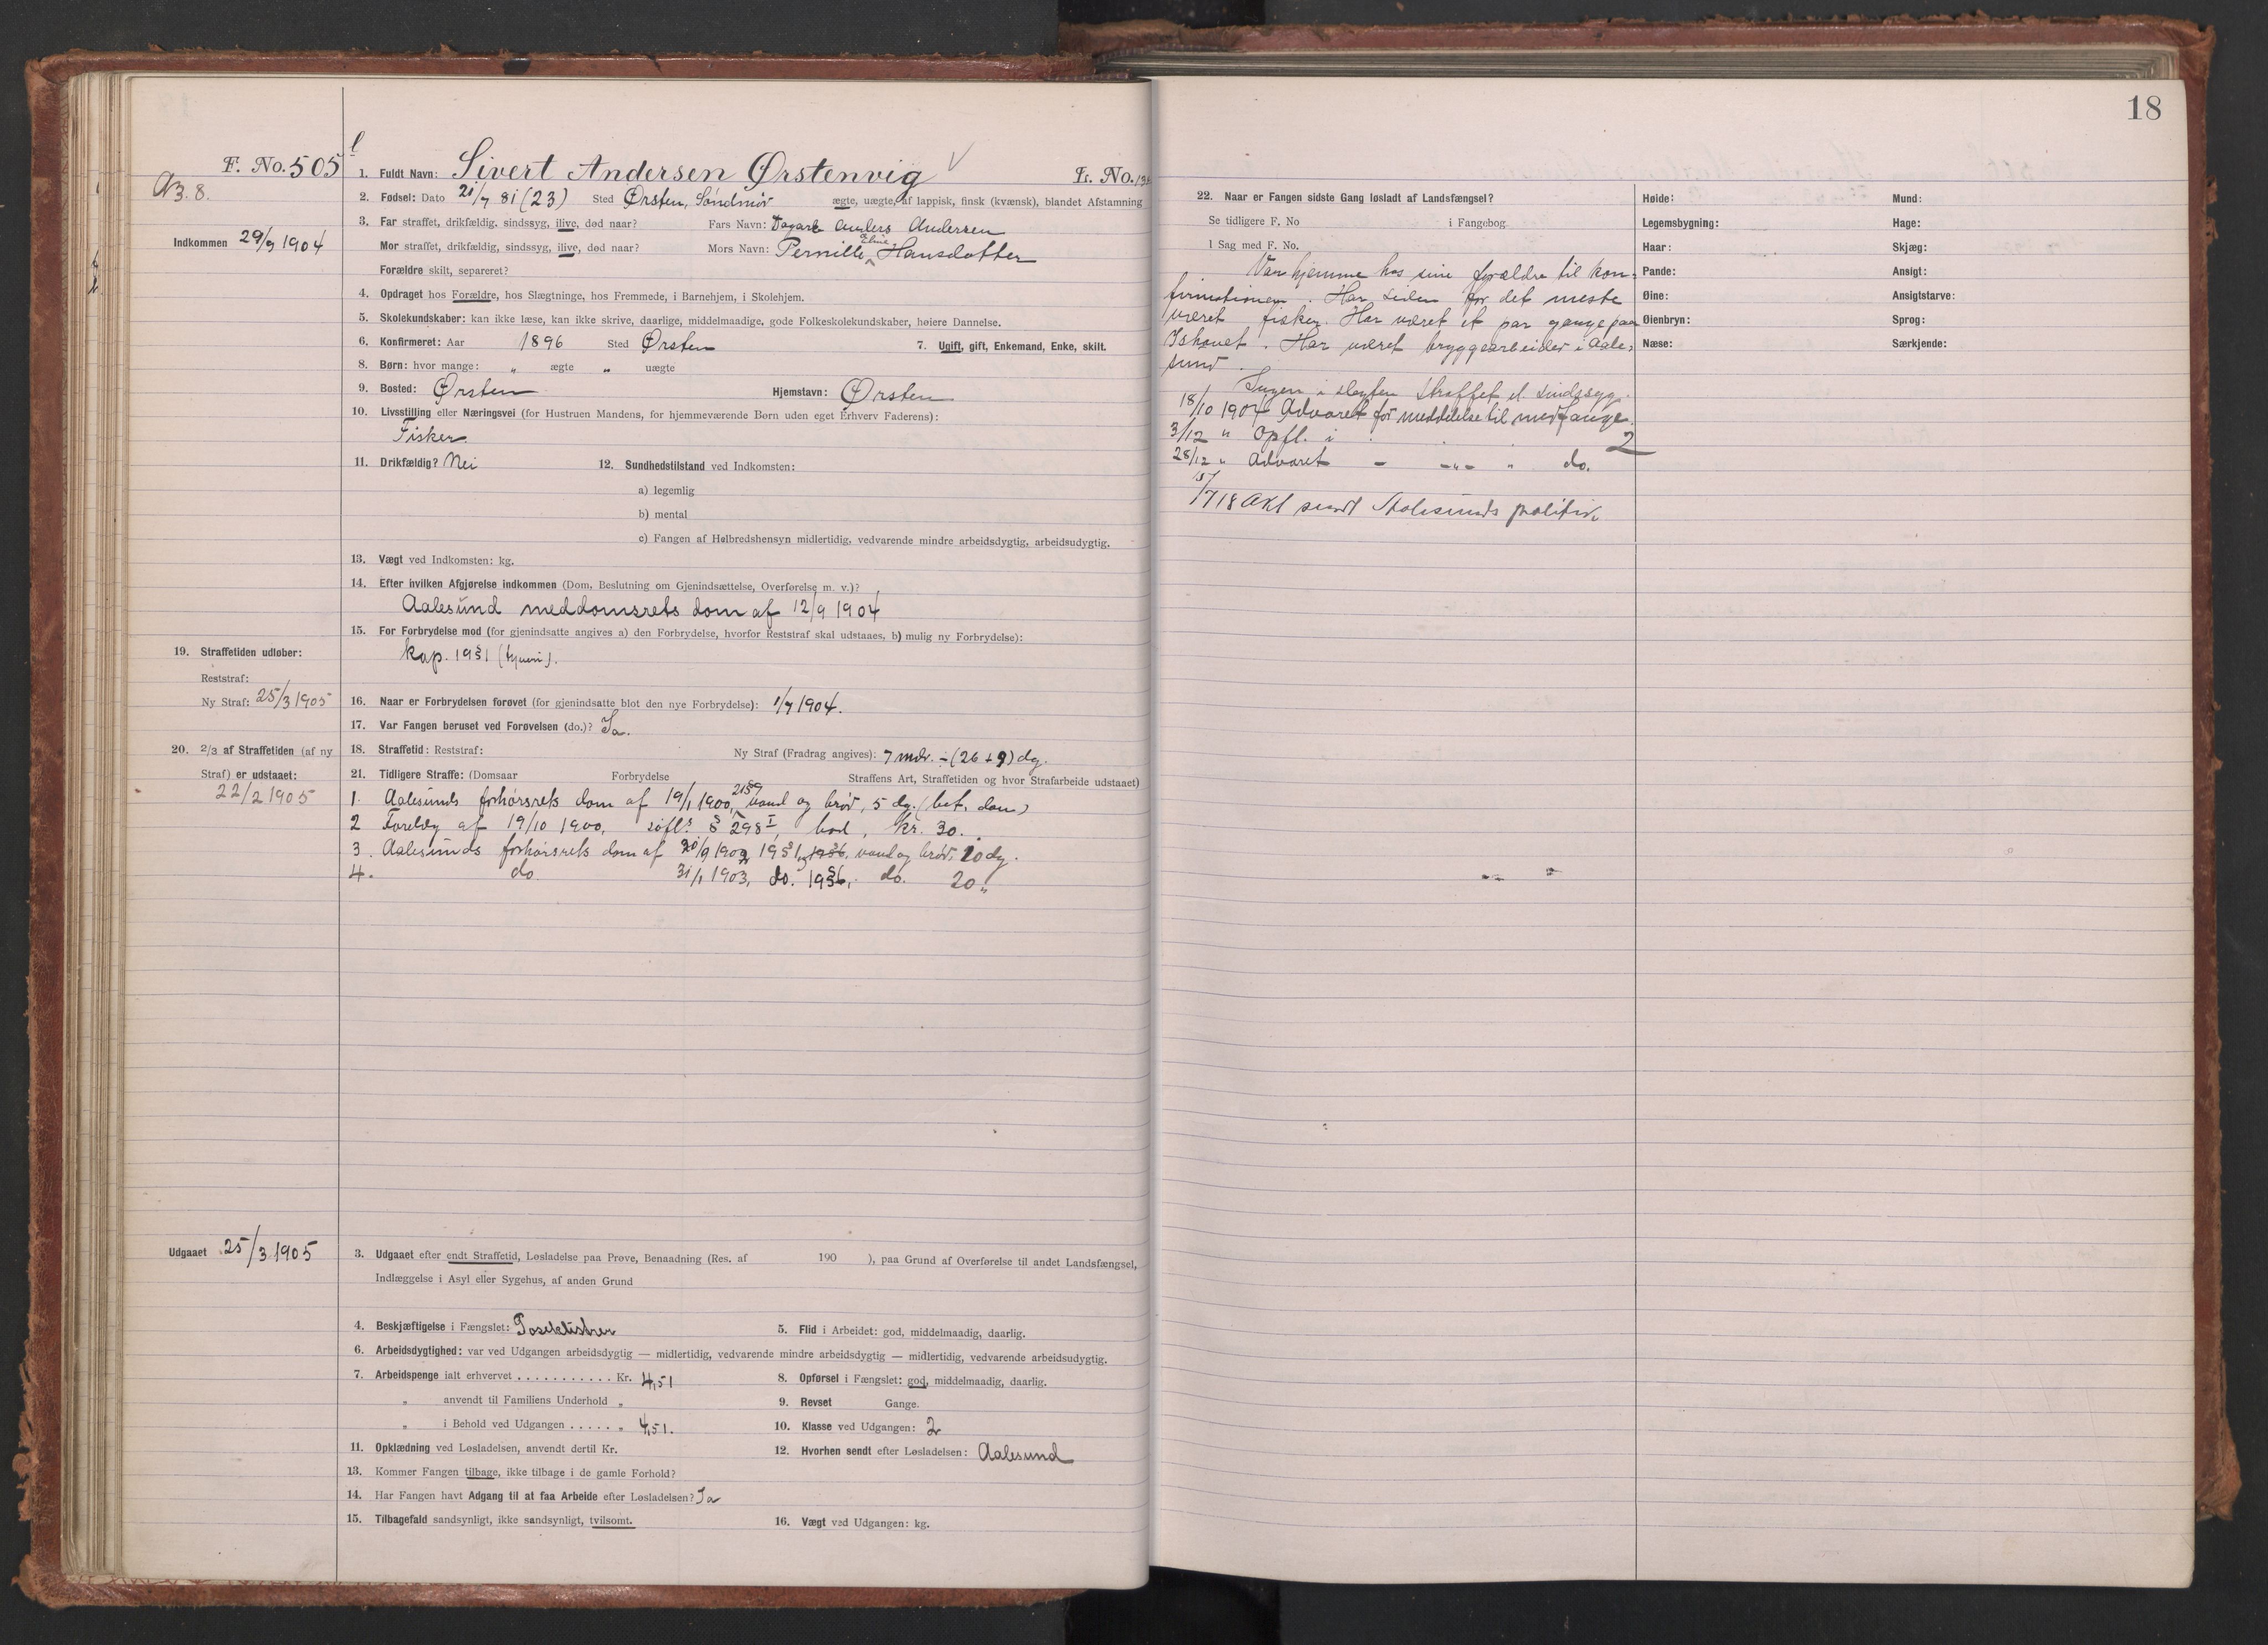 18
F. No. 505
A3. 8.
1. Fuldt Navn: Sivert Andersen Ørstenvig
L. No.
2. Fødsel: Dato 21/7 81 (23) Sted Ørsten, Søndmør ægte, uægte, af lappisk, finsk (kvænsk), blandet Afstamning
Indkommen 29/9 1904
3. Far straffet, drikfældig, sindssyg, ilive, død naar? Fars Navn: Anders Andersen
Mor straffet, drikfældig, sindssyg, ilive, død naar? Mors Navn: Pernille Hansdotter
Forældre skilt, separeret?
4. Opdraget hos Forældre, hos Slægtninge, hos Fremmede, i Barnehjem, i Skolehjem.
5. Skolekundskaber: kan ikke læse, kan ikke skrive, daarlige, middelmaadige, gode Folkeskolekundskaber, høiere Dannelse.
6. Konfirmeret: Aar 1896 Sted Ørsten 7. Ugift, gift, Enkemand, Enke, skilt.
8. Børn: hvor mange: „ ægte „ uægte
9. Bosted: Ørsten Hjemstavn: Ørsten
10. Livsstilling eller Næringsvei (for Hustruen Mandens, for hjemmeværende Børn uden eget Erhverv Faderens):
Fisker
11. Drikfældig? Nei 12. Sundhedstilstand ved Indkomsten:
a) legemlig
b) mental
c) Fangen af Helbredshensyn midlertidig, vedvarende mindre arbeidsdygtig, arbeidsudygtig.
13. Vægt ved Indkomsten: kg.
14. Efter hvilken Afgjørelse indkommen (Dom, Beslutning om Gjenindsættelse, Overførelse m. v.)?
Aalesund meddomsrets dom af 12/9 1904
15. For Forbrydelse mod (for gjenindsatte angives a) den Forbrydelse, hvorfor Reststraf skal udstaaes, b) mulig ny Forbrydelse):
kap. 19 § 1 (tyveri).
19. Straffetiden udløber:
Reststraf:
Ny Straf: 25/3 1905
16. Naar er Forbrydelsen forøvet (for gjenindsatte blot den nye Forbrydelse): 1/7 1904.
17. Var Fangen beruset ved Forøvelsen (do.)? Ja.
20. 2/3 af Straffetiden (af ny
Straf) er udstaaet:
22/2 1905
18. Straffetid: Reststraf: Ny Straf (Fradrag angives): 7 mdr. ÷ (26 + 9) dg.
21. Tidligere Straffe: (Domsaar Forbrydelse Straffens Art, Straffetiden og hvor Strafarbeide udstaaet)
1. Aalesunds forhørsrets dom af 19/1 1900, 21 § 9 vand og brød, 5 dg. (bet. dom)
2 Forelæg af 19/10 1900, § 298 I, bod, kr. 30.
3. Aalesunds forhørsrets dom af 20/9 1902, 19 § 1, vand og brød, 10 dg.
4. do 31/1 1903, do. 19 § 6, do. 20 „
Udgaaet 25/3 1905
3. Udgaaet efter endt Straffetid, Løsladelse paa Prøve, Benaadning (Res. af 190 ), paa Grund af Overførelse til andet Landsfængsel,
Indlæggelse i Asyl eller Sygehus, af anden Grund
4. Beskjæftigelse i Fængslet: Poseklistrer 5. Flid i Arbeidet: god, middelmaadig, daarlig.
6. Arbeidsdygtighed: var ved Udgangen arbeidsdygtig — midlertidig, vedvarende mindre arbeidsdygtig — midlertidig, vedvarende arbeidsudygtig.
7. Arbeidspenge ialt erhvervet . . . . . . . . . . . Kr. 4,51 8. Opførsel i Fængslet: god, middelmaadig, daarlig.
„ anvendt til Familiens Underhold „ 9. Revset Gange.
„ i Behold ved Udgangen . . . . . „ 4,51. 10. Klasse ved Udgangen: 2
11. Opklædning ved Løsladelsen, anvendt dertil Kr. 12. Hvorhen sendt efter Løsladelsen: Aalesund
13. Kommer Fangen tilbage, ikke tilbage i de gamle Forhold?
14. Har Fangen havt Adgang til at faa Arbeide efter Løsladelsen? Ja
15. Tilbagefald sandsynligt, ikke sandsynligt, tvilsomt. 16. Vægt ved Udgangen: kg.
22. Naar er Fangen sidste Gang løsladt af Landsfængsel?
Se tidligere F. No i Fangebog
I Sag med F. No.
Var hjemme hos sine forældre til kon-
firmationen. Har siden for det meste
været fisker. Har været et par gange paa
Ishavet. Har været bryggearbeider i Aale-
sund.
Ingen i slegten straffet el. sindssyg.
18/10 1904 Advaret for meddelelse til medfange.
3/12 „ Opfl. i 2
28/12 „ Advaret - -„- „ do.
/7 18 Akt sendt Aalesunds politik.
Høide: Mund:
Legemsbygning: Hage:
Haar: Skjæg:
Pande: Ansigt:
Øine: Ansigtstarve:
Øienbryn: Sprog:
Næse: Særkjende: